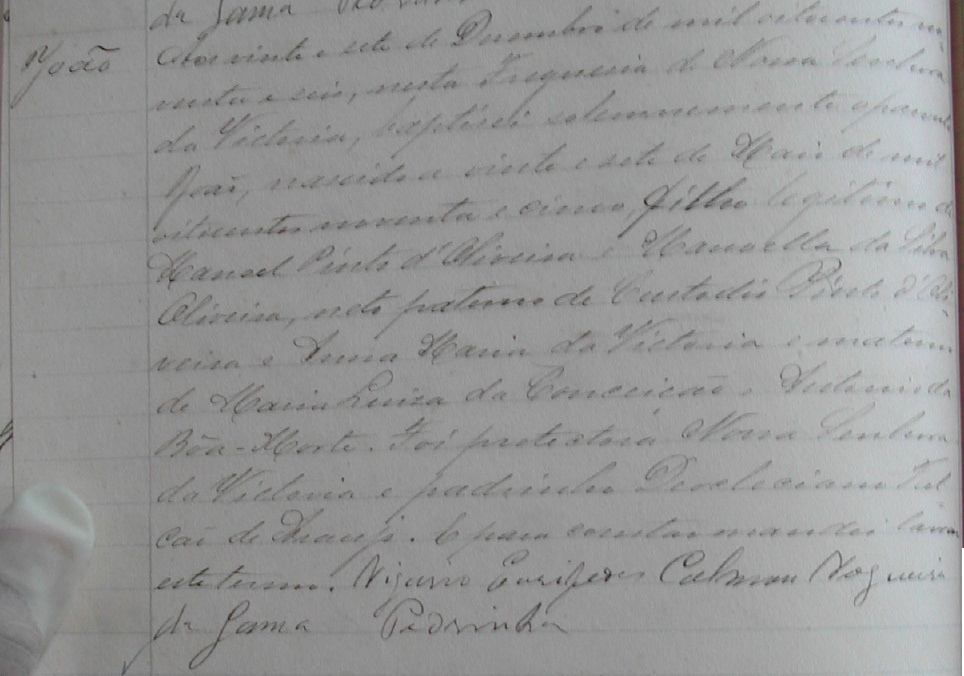 da Gama Pedrinha
João
Aos vinte e sete de Dezembro de mil oitocentos no-
venta e seis, nesta Freguesia de Nossa Senhora
da Victoria, baptisei solemnemente o parvulo
João, nascido a vinte e sete de Maio de mil
oitocentos noventa e cinco, filho legitimo de
Manoel Pinto d'Oliveira e Manoella da Silva
Oliveira, neto paterno de Custodio Pinto d'Oli-
veira e Anna Maria da Victoria e materno
de Maria Luiza da Conceição e Antonio da
Bôa-Morte. Foi protectora Nossa Senhora
da Victoria e padrinho Deocleciano Fal
cão de Araujo. E para constar mandei lavrar
este termo. Vigario Euripedes Calmon Nogueira
da Gama Pedrinha